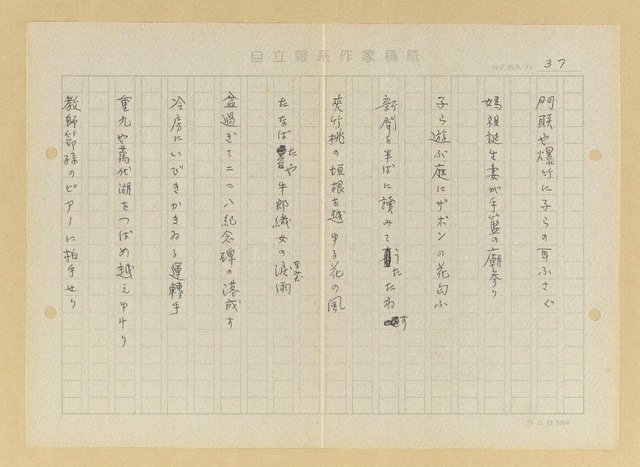 自立報系作家稿紙
37
門聯や爆竹に子らの耳ふさぐ
媽祖誕生妻が手籃の廟參り
子ら遊ぶ庭にザボンの花匂ふ
新聞を半ばに讀みてうたたねす
夾竹桃の垣根を越ゆる花の風
たなばたや牛郎織女の淚雨
盆過ぎて二二八紀念碑の落成す
冷房にいびきかきゐる運轉手
重九や萬代湖をつばめ越えゆけり
教師節孫のピアノに拍手せり